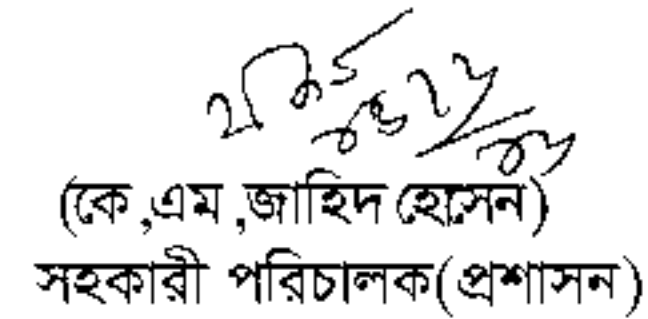 (কে ,এম ,জাহিদ হোসেন)
সহকারী পরিচালক(প্রশাসন)